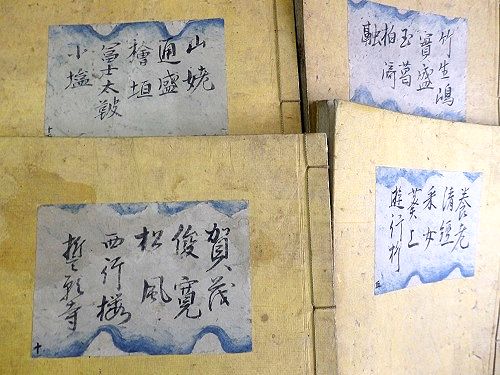 山姥
通盛
檜垣
冨士太皷
小塩
竹生嶋
實盛
玉葛
柏崎
融
賀茂
俊寛
松風
西行桜
誓願寺
十
養老
清経
采女
葵上
遊行柳